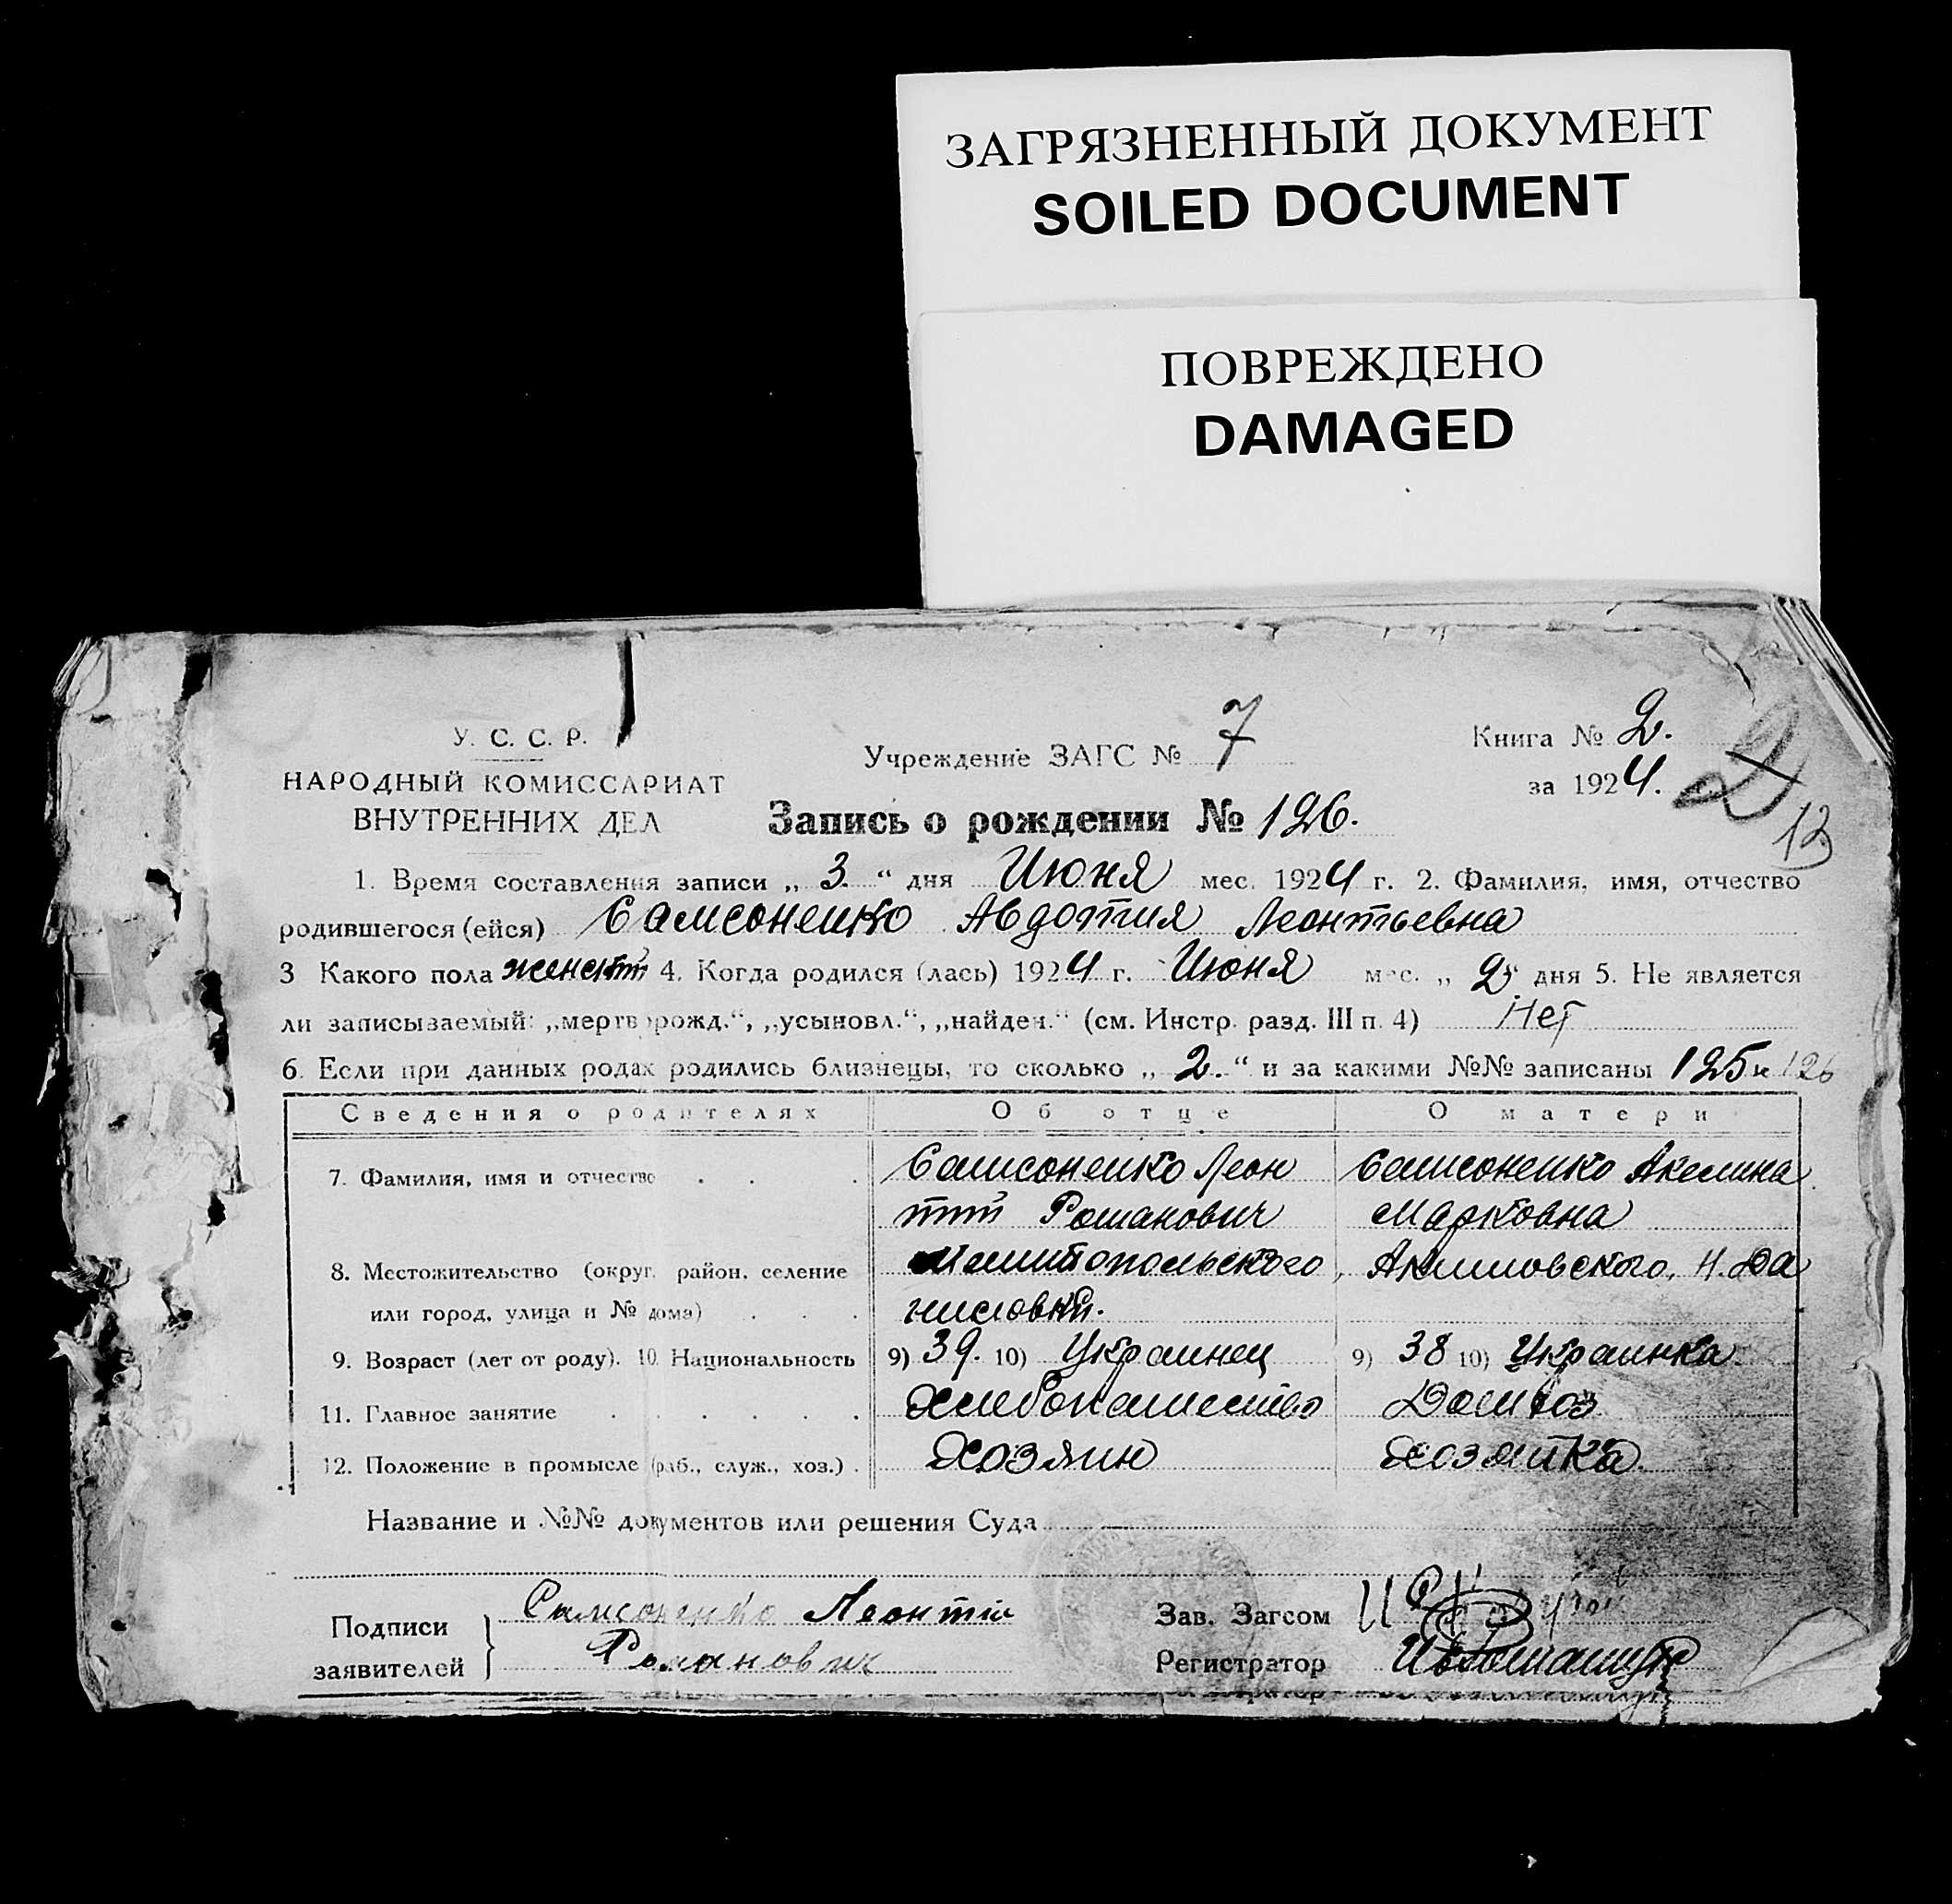 ЗАГРЯЗНЕННЫЙ ДОКУМЕНТ
SOILED DOCUMENT
ПОВРЕЖДЕНО
DAMAGED
У. С. С. Р.
НАРОДНЫЙ КОМИССАРИАТ
ВНУТРЕННИХ ДЕЛ
Учреждение ЗАГС № 7
Книга № 2.
за 1924.
2
13
Запись о рождении № 126.
1. Время составления записи „ 3. “ дня Июня мес. 1924 г. 2. Фамилия, имя, отчество
родившегося (ейся) Самсоненко Авдотия Леонтьевна
3 Какого пола 4. Когда родился (лась) 1924 г. Июня мес. „ 2 дня 5. Не является
ли записываемый: „мерторожд.“, „усыновл.“, „найден.“ (см. Инстр. разд. III п. 4) Нет
6. Если при данных родах родились близнецы, то сколько „ 2. “ и за какими №№ записаны 125 и 126
Сведения о родителях Об отце О матери
7. Фамилия, имя и отчество Самсоненко Леон Самсоненко Акелина
тий Романович Марковна
8. Местожительство (округ, район, селение Мелитопольского, Акимовского, Н. Да
или город, улица и № дома) ниловки.
9. Возраст (лет от роду). 10. Национальность 9) 39. 10) Украинец 9) 38 10) Украинка.
11. Главное занятие Хлебопашество Домхоз
12. Положение в промысле (раб., служ., хоз.) Хозяин хозяйка.
Название и №№ документов или решения Суда —
Подписи заявителей Самсоненко Леонтий
Романович
Зав. Загсом
Регистратор